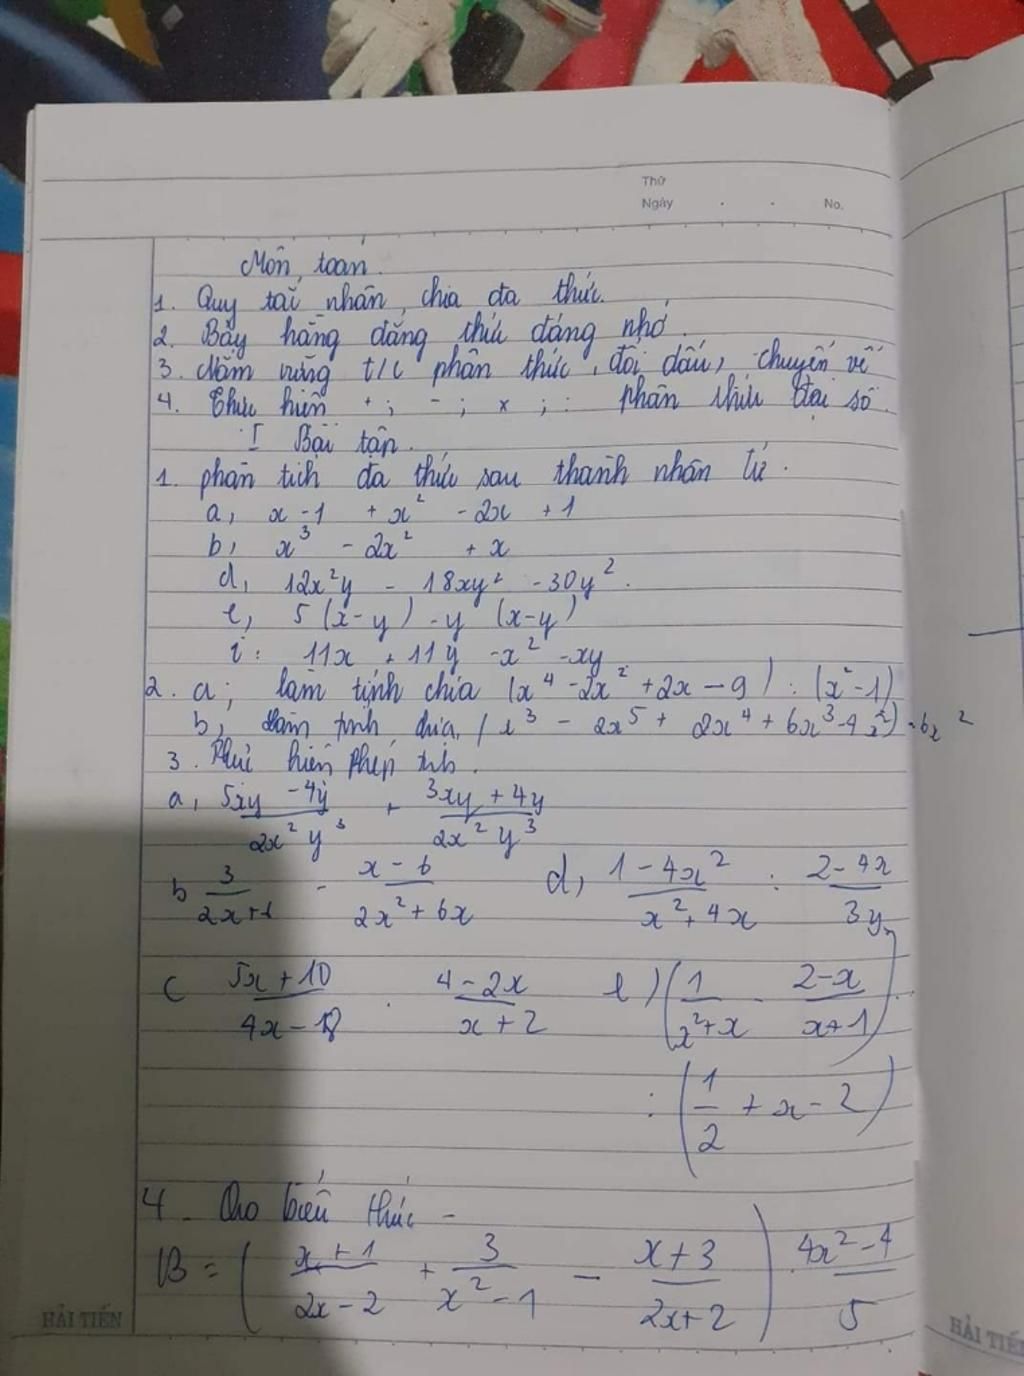 Thứ
Ngày . . No.
Môn toan.
1. Quy tắc nhân, chia đa thức.
2. Bảy hằng đẳng thức đáng nhớ.
3. Nắm vững t/c phân thức, đổi dấu, chuyển vế
4. Thực hiện + ; - ; x ; : phân thức đại số.
I Bài tập.
1. phân tích đa thức sau thành nhân tử.
a, x - 1 + x² - 2x + 1
b, x³ - 2x² + x
d, 12x²y - 18xy² - 30y².
e, 5(x-y) - y (x-y)
i: 11x + 11y - x² - xy
2. a; làm tính chia (x⁴ - 2x² + 2x - 9) : (x² - 1)
b, làm tính chia, ( x³ - 2x⁵ + 2x⁴ + 6x³ - 4x²) : 6x²
3. Thực hiện phép tính.
a, (5xy - 4y)/(2x²y³) + (3xy + 4y)/(2x²y³)
b 3/(2x+6) - (x-6)/(2x²+6x) d, (1-4x²)/(x²+4x) : (2-4x)/3y
c (5x+10)/(4x-18) . (4-2x)/(x+2) e) (1/(x²+x) - (2-x)/(x+1))
: (1/2 + x - 2)
4 - Cho biểu thức -
B = ( (x+1)/(2x-2) + 3/(x²-1) - (x+3)/(2x+2) ) . (4x²-4)/5
HẢI TIẾN
HẢI TIẾN